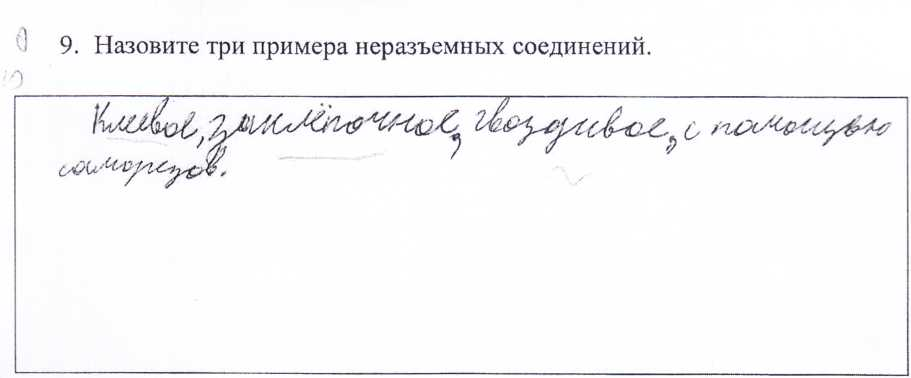 9. Назовите три примера неразъемных соединений.
Клеевое, заклёпочное, гвоздивое, с помощью
саморезов.